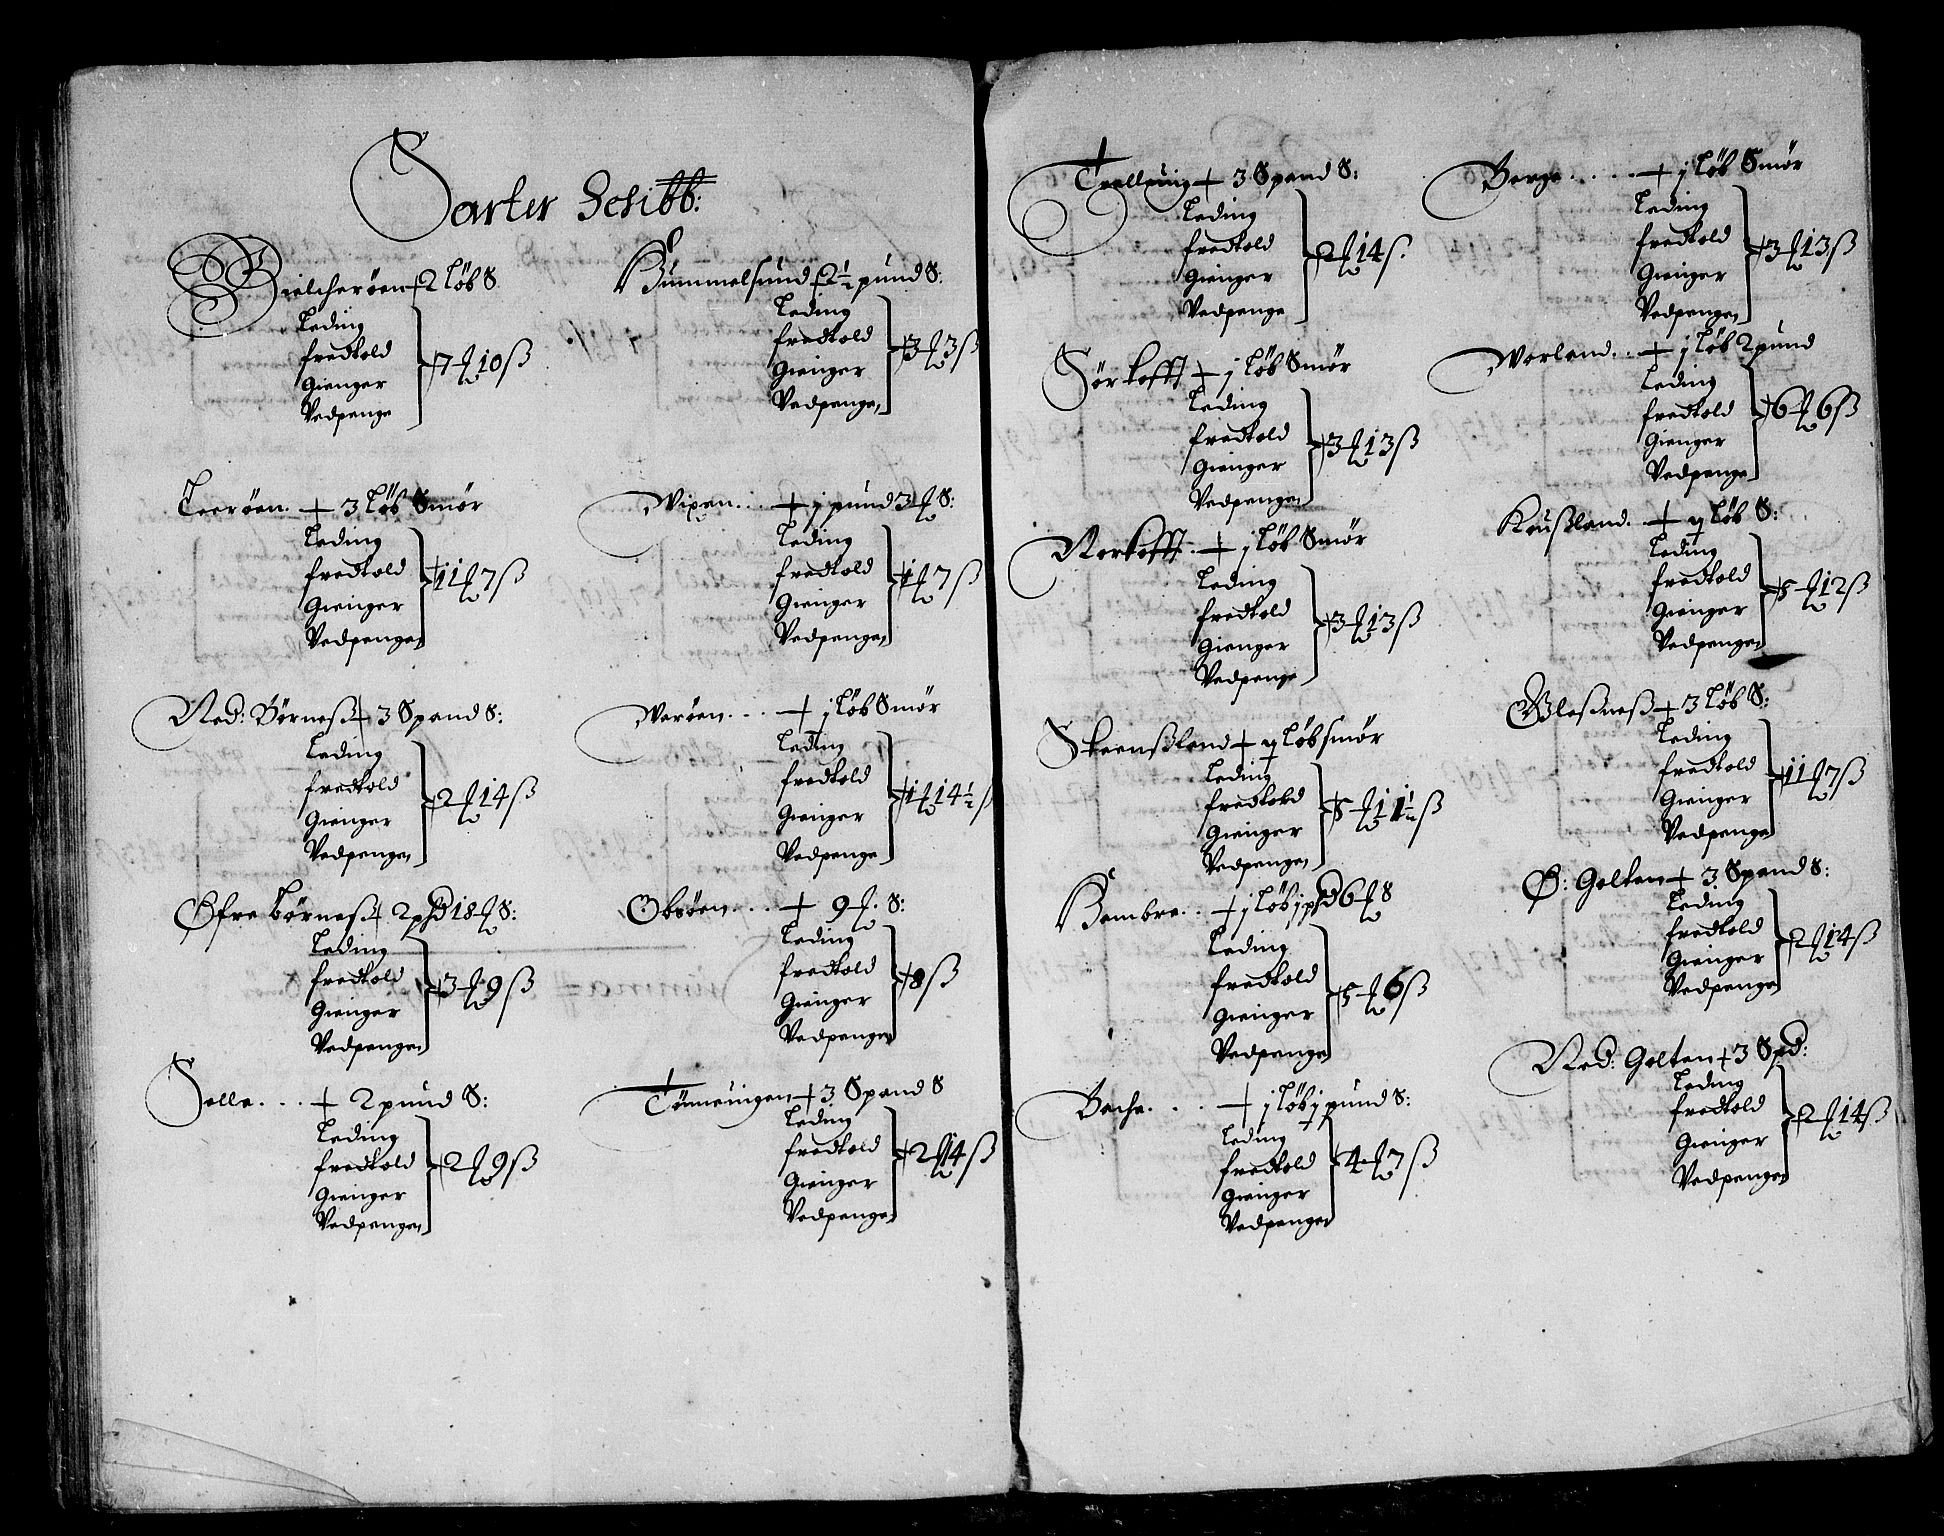 Sarter Schibb:
Bielcherøen 2 løb S
Leding
fredtold
Gienger
Vedpenge
7 ℔ 10 ß
Terøen. 3 løb Smør
Leding
fredtold
Gienger
Vedpengen
11 ℔ 7 ß
Ned: Børneß 3 Spand S:
Leding
fredtold
Gienger
Vedpengen
2 ℔ 14 ß
Øfre børneß 2 pd 18 ℔ S:
Leding
fredtold
Gienger
Vedpengen
3 ℔ 9 ß
Selle. . . . 2 pund S:
Leding
fredtold
Gienger
Vedpengen
2 ℔ 9 ß
Hummelsund 2½ pund S:
Leding
fredtold
Gienger
Vedpengen
3 ℔ 3 ß
Wixen. . . j pund 3 ℔ S:
Leding
fredtold
Gienger
Vedpengen
1 ℔ 7 ß
Werøen. . . . j løb Smør
Leding
fredtold
Gienger
Vedpenge
1 ℔ 14½ ß
Obsøen. . . . 9 ℔. S:
Leding
fredtold
Gienger
Vedpengen
8 ß
3 Spand S
Leding
fredtold
Gienger
Vedpengen
2 ℔ 14 ß
Trellevig 3 Spand S:
Leding
fredtold
Gienger
Vedpenge
2 ℔ 14 ß.
Sørtofft j løb Smør
Leding
fredtold
Gienger
Vedpengen
3 ℔ 13 ß
Nortofft. j løb Smør
Leding
fredtold
Gienger
Vedpenge
3 ℔ 13 ß
Skeenßland løb smør
Leding
fredtold
Gienger
Vedpengen
5 ℔ 11½ ß
Hembre. . j løb j pd 6 ℔ S
Leding
fredtold
Gienger
Vedpengen
5 ℔ 6 ß
Beche. . . . j løb j pund S:
Leding
fredtold
Gienger
Vedpengen
4 ℔ 7 ß
Berge. . . . . j løb Smør
Leding
fredtold
Gienger
Vedpengen
3 ℔ 13 ß
Worland. . . j løb 2 pund
Leding
fredtold
Gienger
Vedpenge
6 ℔ 6 ß
Kaußland. løb S:
Leding
fredtold
Gienger
Vedpengen
5 ℔ 12 ß
3 løb S:
Leding
fredtold
Gienger
Vedpenge
11 ℔ 7 ß
Ø: Golten 3 Spand S:
Leding
fredtold
Gienger
Vedpengen
2 ℔ 14 ß
Ned: Golten 3 Spd:
Leding
fredtold
Gienger
Vedpengen
2 ℔ 14 ß